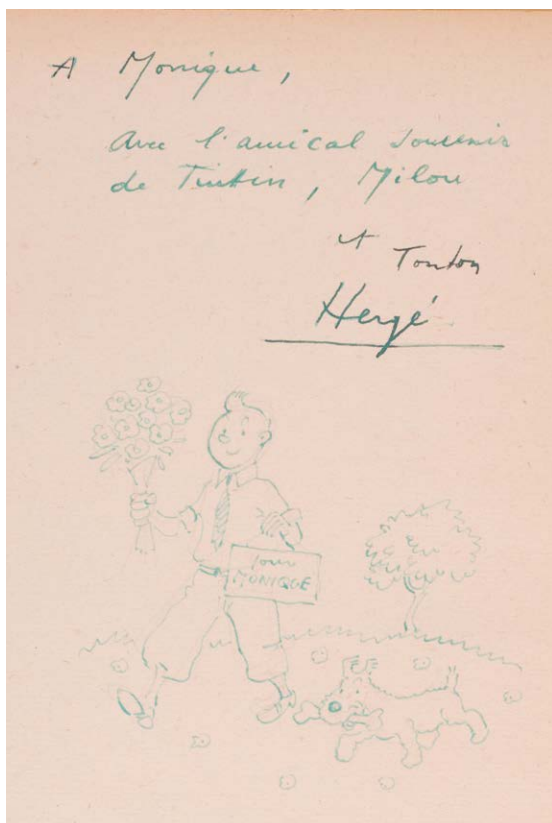 A Monique,
avec l'amical souvenir
de Tintin, Milou
et Tonton
Hergé
pour
MONIQUE